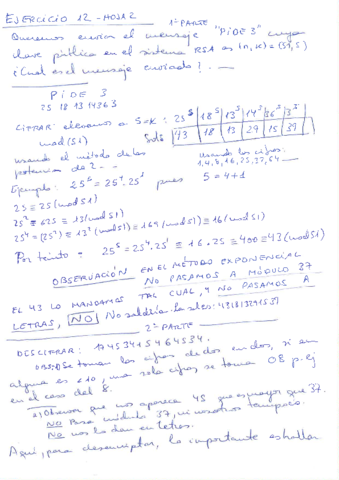 EJERCICIO 12 - HOJA 2
1ª PARTE
Queremos enviar el mensaje "PIDE 3" cuya
clave pública en el sistema RSA es (n,k) = (51,5)
¿Cual es el mensaje enviado?
PIDE 3
CIFRAR elevamos a 5=k:
mod(51)
43 18 13 29 15 39
usando el método de las
potencias de 2
1,4,8,16,25,32,64
Ejemplo: 25⁵ = 25⁴·25¹ pues 5=4+1
25 ≡ 25 (mod 51)
25² ≡ 625 ≡ 13 (mod 51)
25⁴ = (25²)² ≡ 13² (mod 51) ≡ 169 (mod 51) ≡ 16 (mod 51)
Por tanto: 25⁵ = 25⁴·25¹ ≡ 16·25 ≡ 400 ≡ 43 (mod 51)
OBSERVACIÓN EN EL MÉTODO EXPONENCIAL
NO PASAMOS A MÓDULO 37
EL 43 LO MANDAMOS TAL CUAL, Y NO PASAMOS A
LETRAS, NO
2ª PARTE
DESCIFRAR: 1745341546 4534.
se toman las cifras de dos en dos, si en
alguna es <10, una sola cifra se toma 08 p.ej
en el caso del 8.
Observar que nos aparece 45 que es mayor que 37.
NO Para módulo 37, ni nosotros tampoco.
NO nos lo dan en letras.
Aquí, para desencriptar, lo importante es hallar